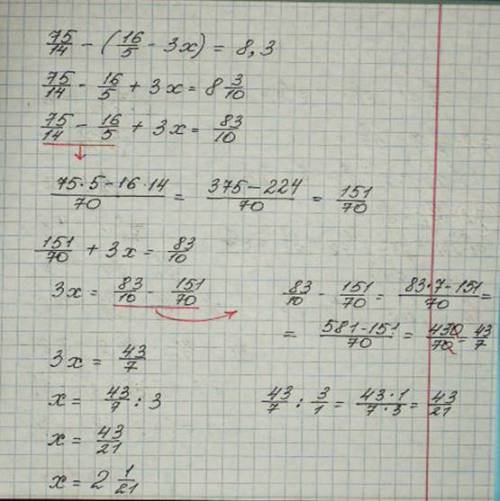 75/14 - (16/5 - 3x) = 8,3
75/14 - 16/5 + 3x = 8 3/10
75/14 - 16/5 + 3x = 83/10
(75·5-16·14)/70 = (375-224)/70 = 151/70
151/70 + 3x = 83/10
3x = 83/10 - 151/70
83/10 - 151/70 = (83·7-151)/70 =
= (581-151)/70 = 430/70 = 43/7
3x = 43/7
x = 43/7 : 3
43/7 : 3/1 = (43·1)/(7·3) = 43/21
x = 43/21
x = 2 1/21